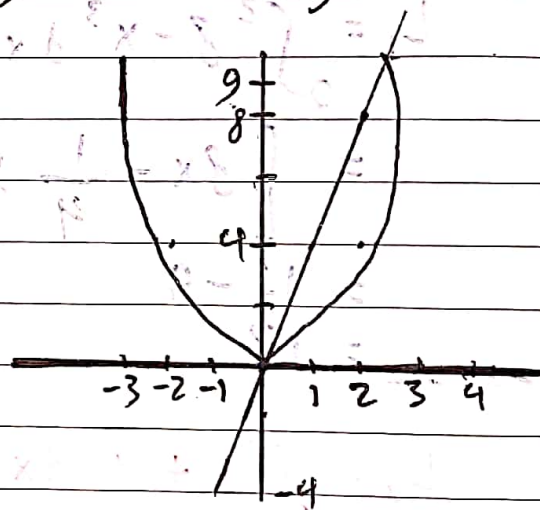 9
8
4
-3 -2 -1 1 2 3 4
-4